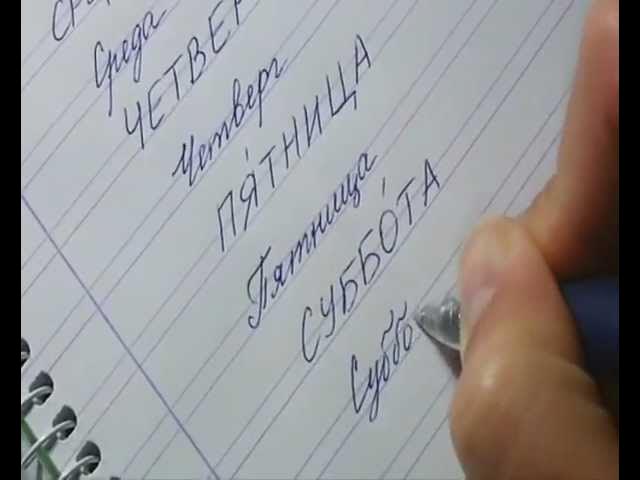 СРЕ
Среда
ЧЕТВЕР
Четверг
ПЯ́ТНИЦА
Пятница
СУББО́ТА
Суббо